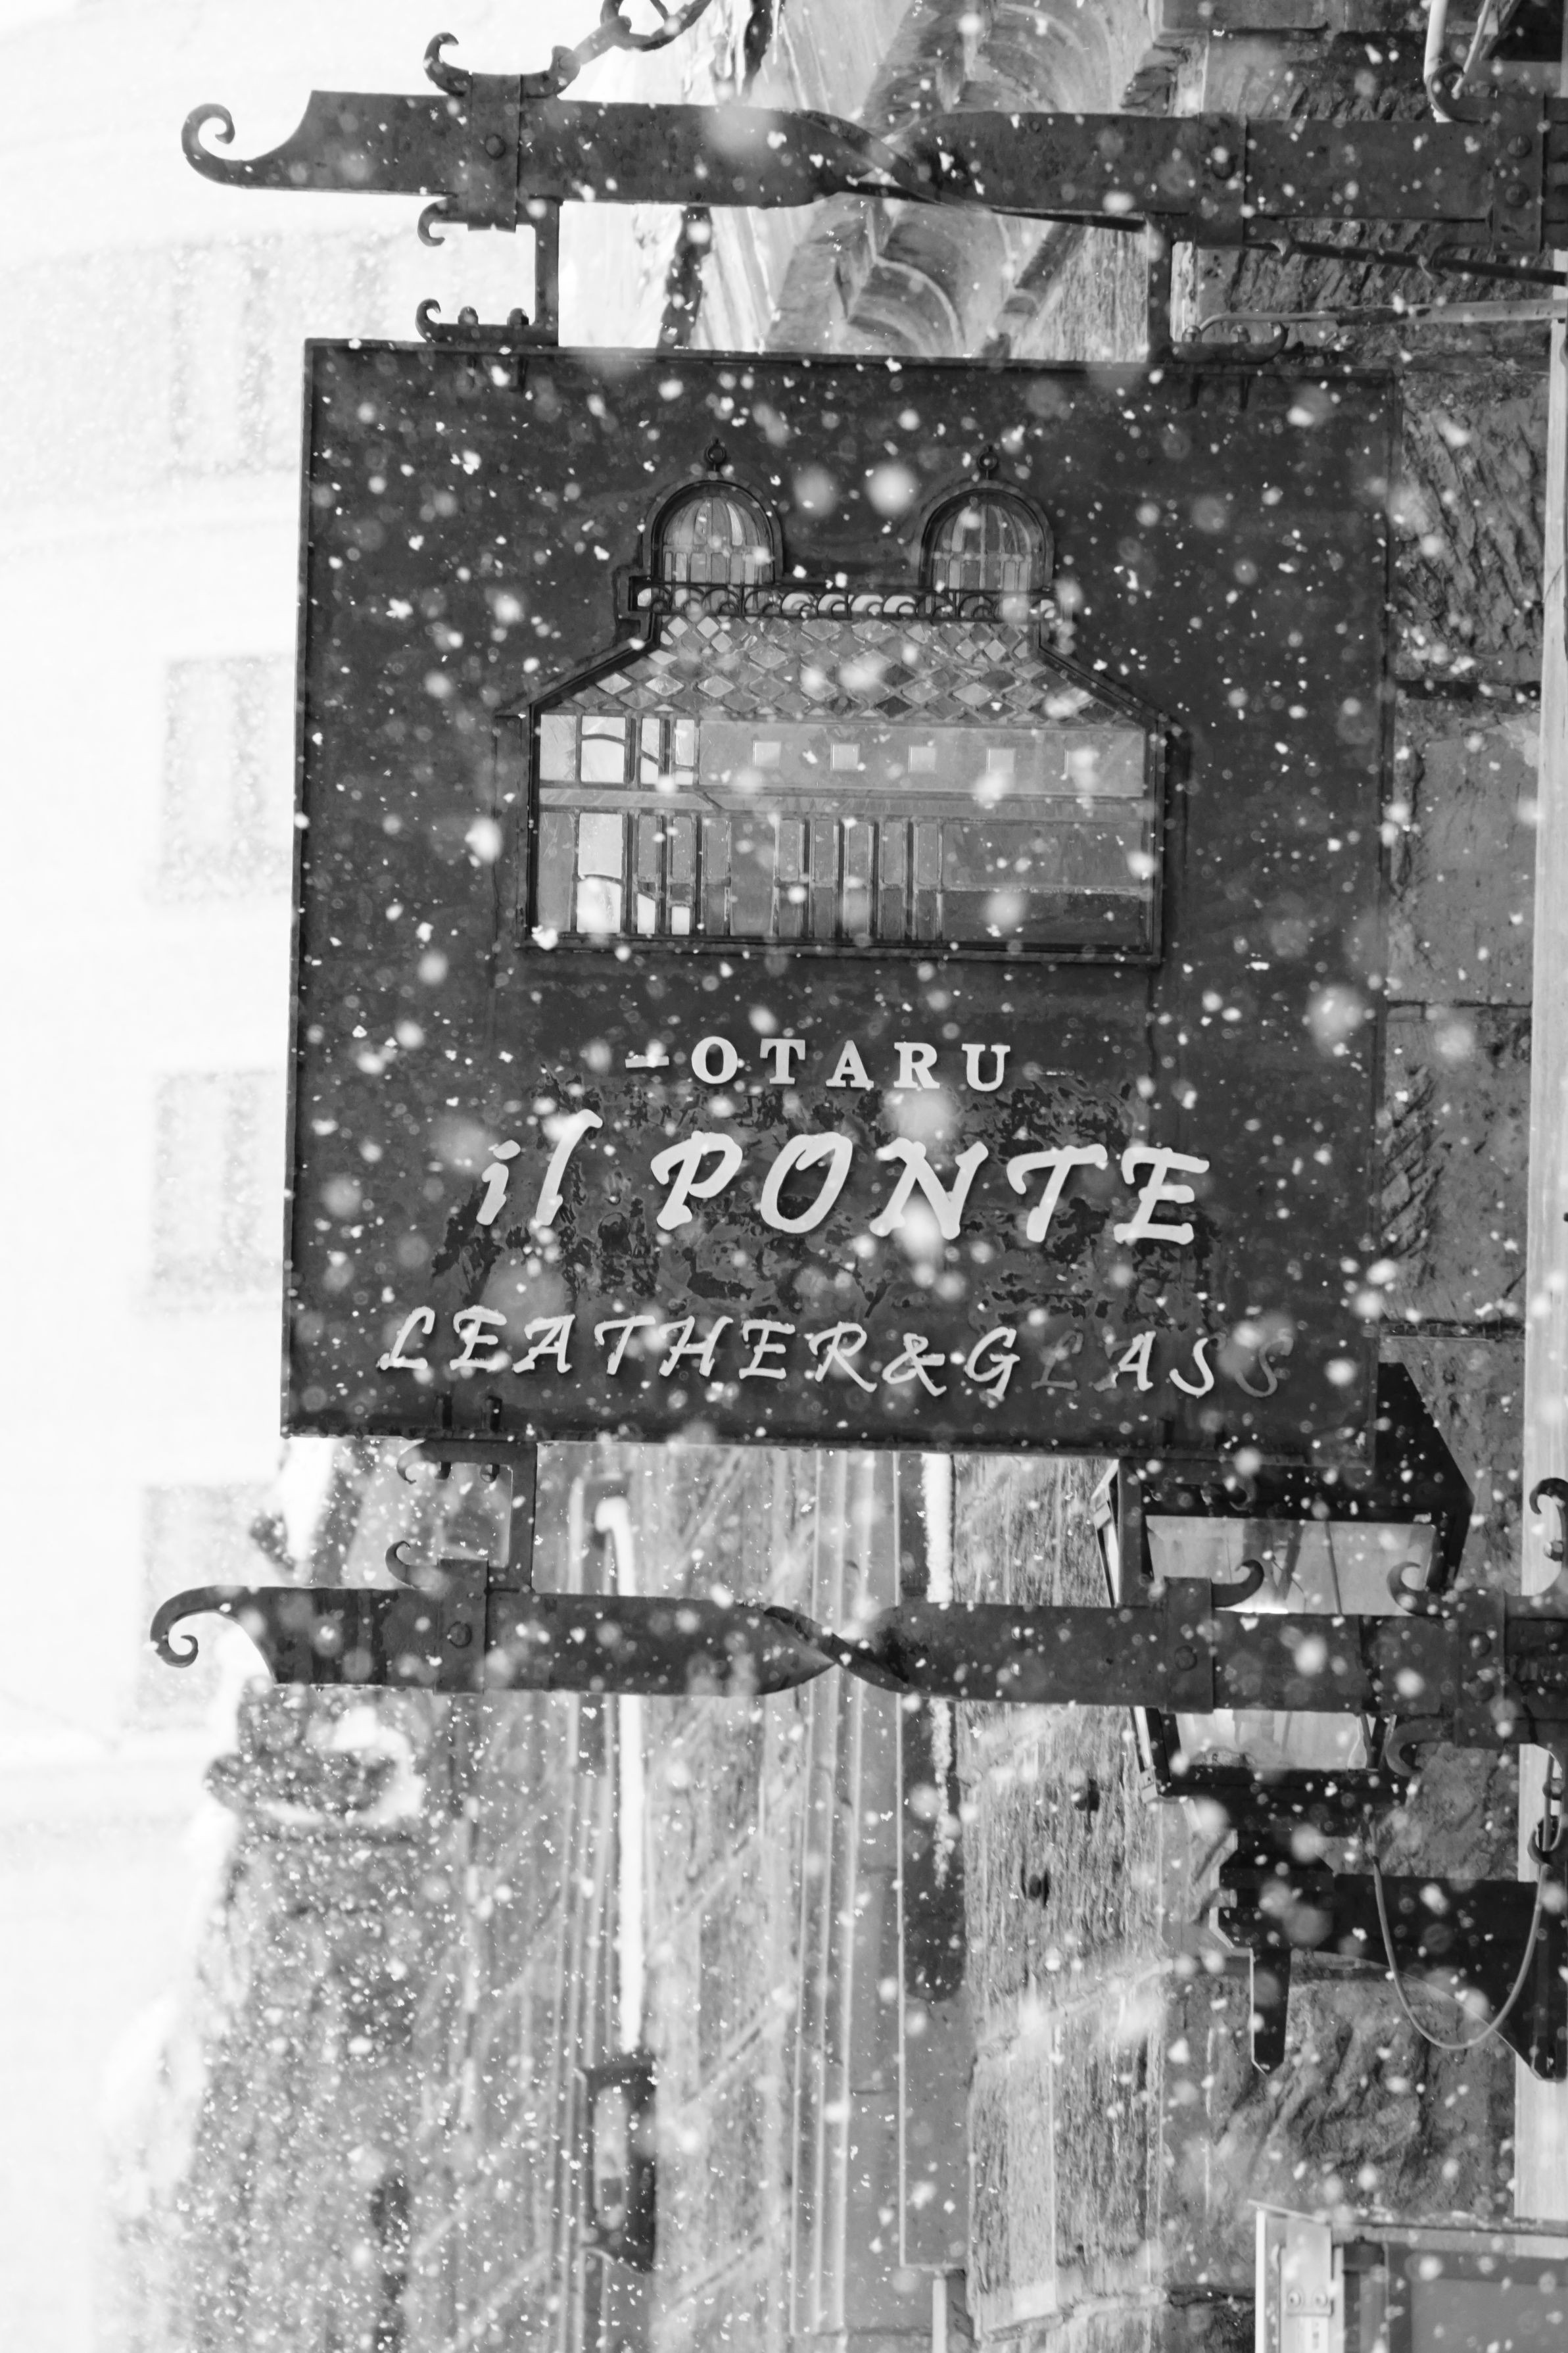 -OTARU-
il PONTE
LEATHER&GLASS